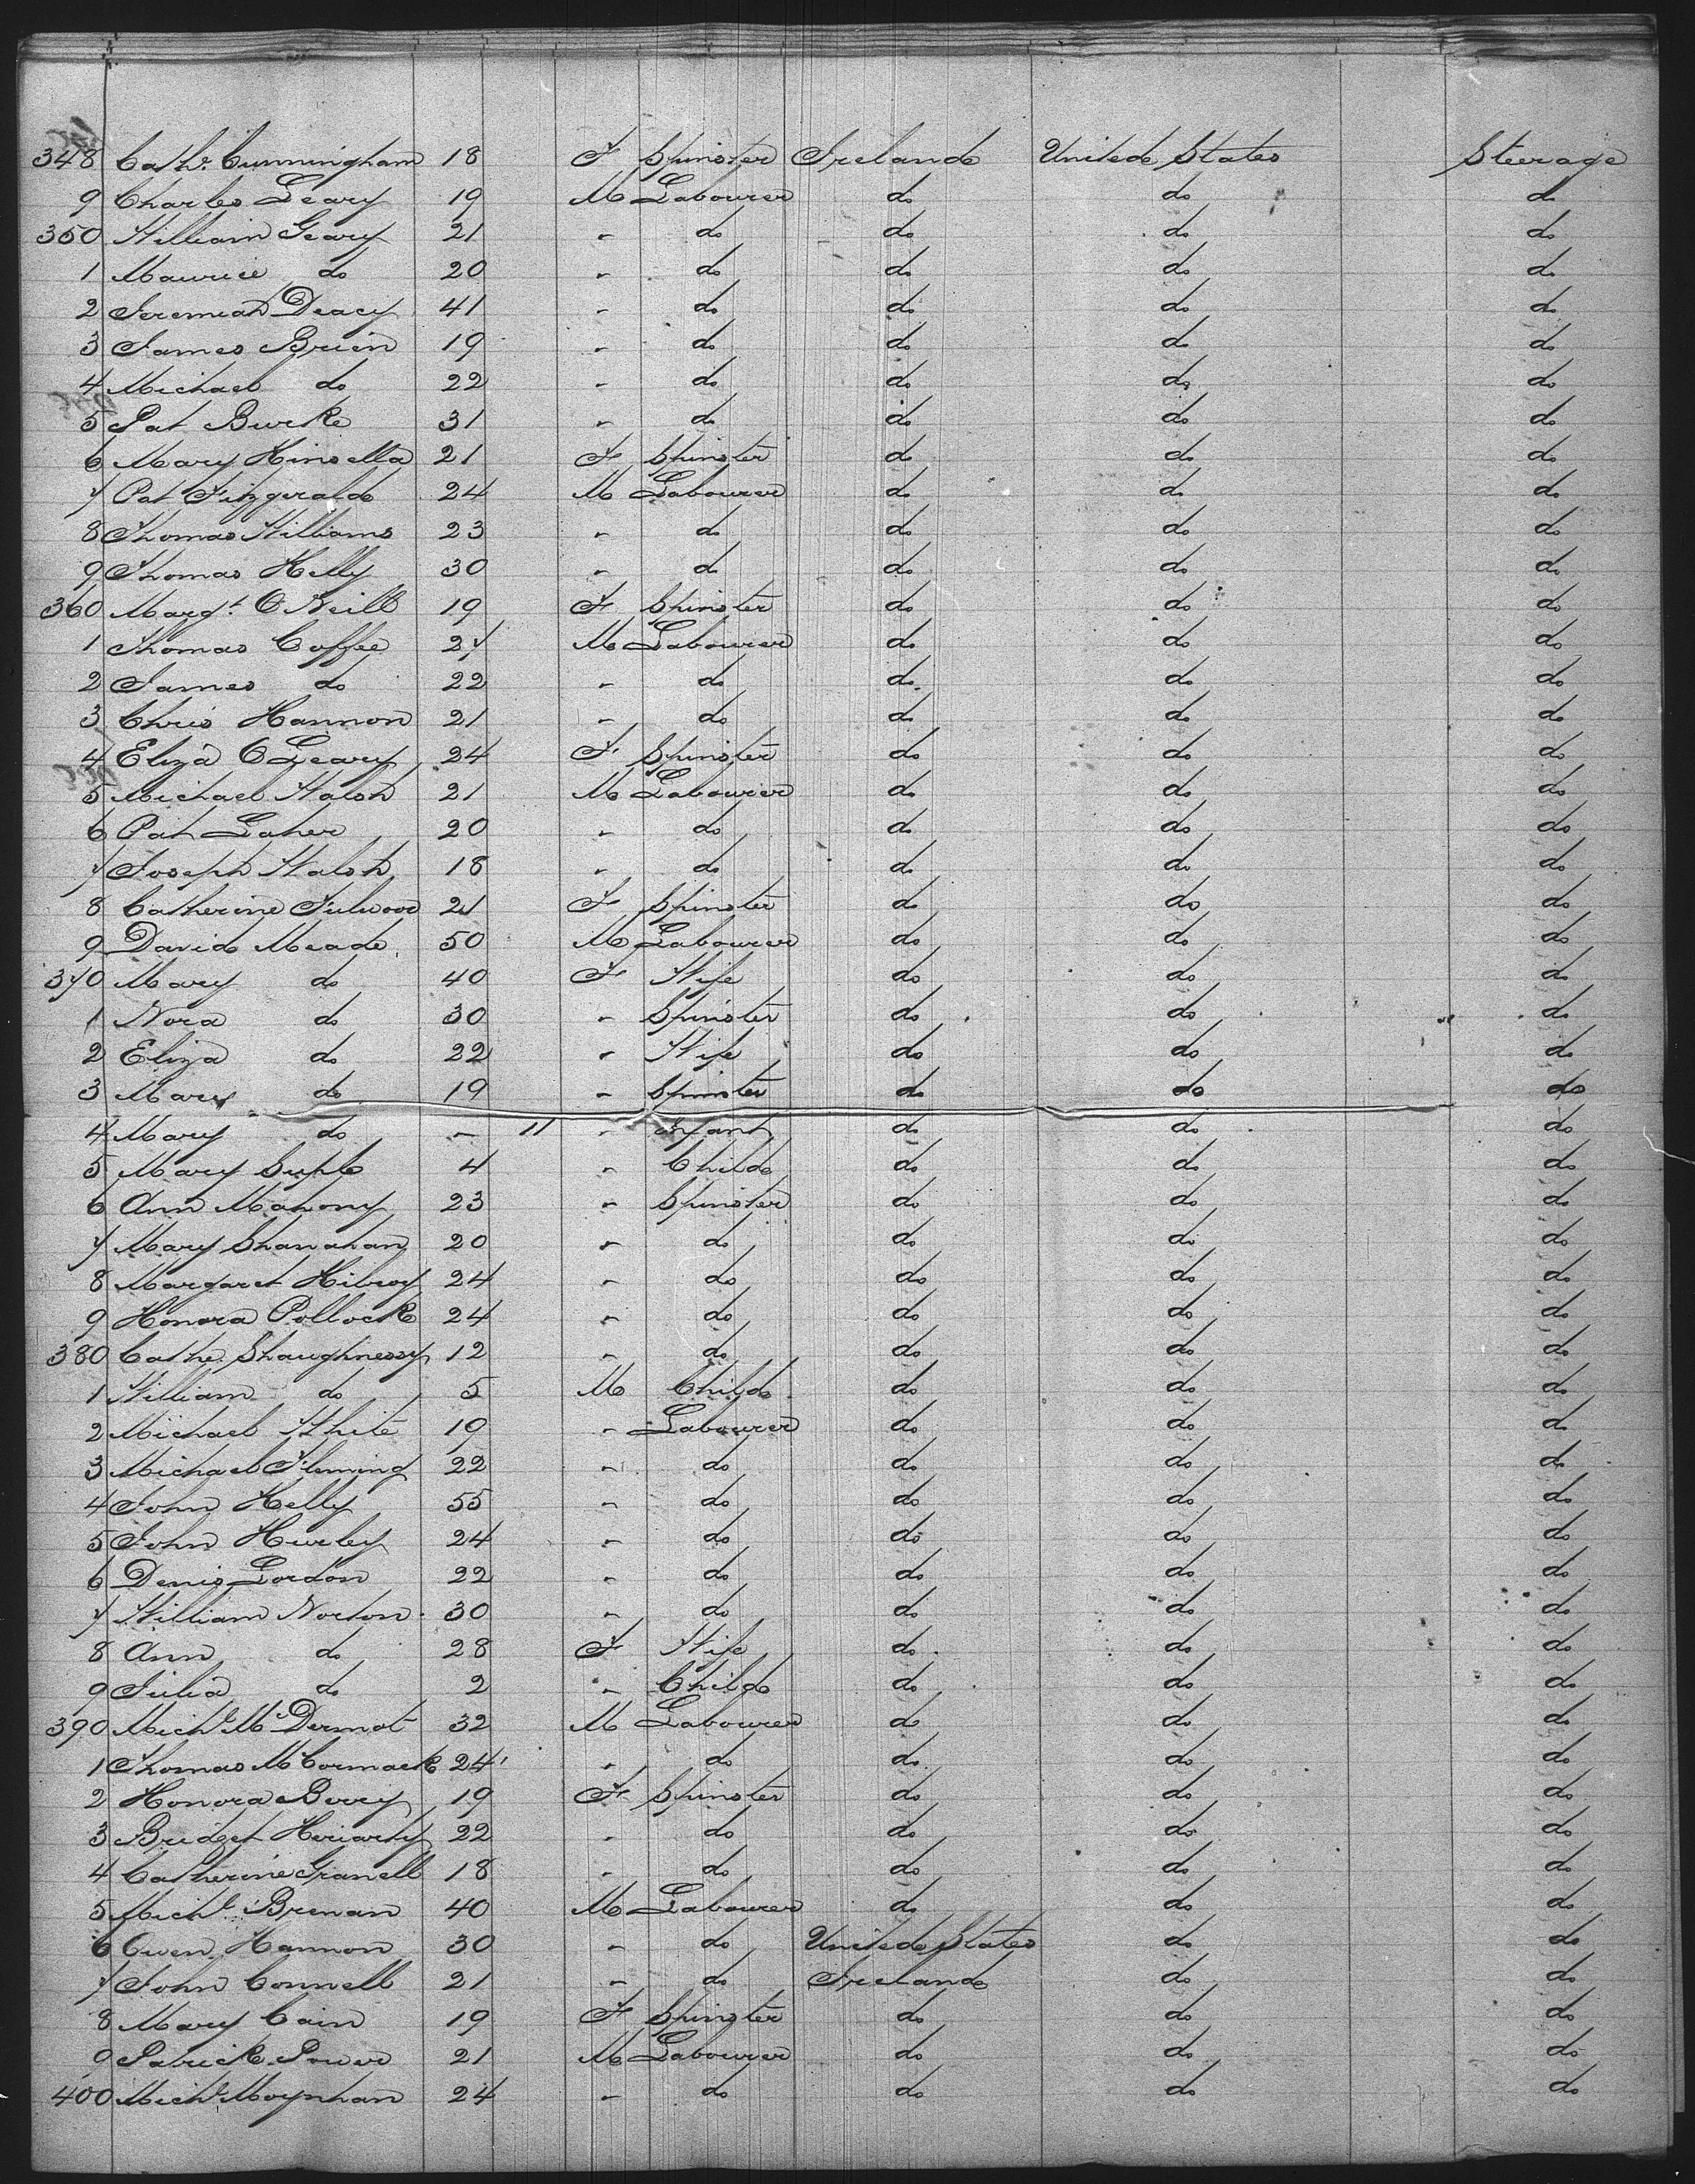 348 Cath. Cunningham 18 F Spinster Ireland United States Steerage
9 Charles Leary 19 M Labourer do do do
350 William Geary 21 " do do do do
1 Maurice do 20 " do do do do
2 Jeremiah Deacy 41 " do do do do
3 James Brien 19 " do do do do
4 Michael do 22 " do do do do
5 Pat Burke 31 " do do do do
6 Mary Kinsella 21 F Spinster do do do
7 Pat Fitzgerald 24 M Labourer do do do
8 Thomas Williams 23 " do do do do
9 Thomas Kelly 30 " do do do do
360 Margt. O Neill 19 F Spinster do do do
1 Thomas Coffee 27 M Labourer do do do
2 James do 22 " do do do do
3 Chris Hannon 21 " do do do do
4 Eliza O Leary 24 F Spinster do do do
5 Michael Walsh 21 M Labourer do do do
6 Pat Laher 20 " do do do do
7 Joseph Walsh 18 " do do do do
8 Catherine Fulwood 21 F Spinster do do do
9 David Meade 50 M Labourer do do do
370 Mary do 40 F Wife do do do
1 Nora do 30 " Spinster do do do
2 Eliza do 22 " Wife do do do
3 Mary do 19 " Spinster do do do
4 Mary do - 11 " Infant do do do
5 Mary 4 " Child do do do
6 Ann Mahony 23 " Spinster do do do
7 Mary Shanahan 20 " do do do do
8 Margaret Kilroy 24 " do do do do
9 Honora Pollock 24 " do do do do
380 Cathe. Shaughnessy 12 " do do do do
1 William do 5 M Child do do do
2 Michael White 19 " Labourer do do do
3 Michael Fleming 22 " do do do do
4 John Kelly 55 " do do do do
5 John Hurley 24 " do do do do
6 Denis Lordon 22 " do do do do
7 William Norton 30 " do do do do
8 Ann do 28 F Wife do do do
9 Julia do 2 " Child do do do
390 Michl. McDermot 32 M Labourer do do do
1 Thomas McCormack 24 " do do do do
2 Honora Berry 19 F Spinster do do do
3 Bridget 22 " do do do do
4 Catherine Granell 18 " do do do do
5 Michl. Brenan 40 M Labourer do do do
6 Owen Hannon 30 " do United States do do
7 John Connell 21 " do Ireland do do
8 Mary Cain 19 F Spinster do do do
9 Patrick Power 21 M Labourer do do do
400 Michl. Moynhan 24 " do do do do